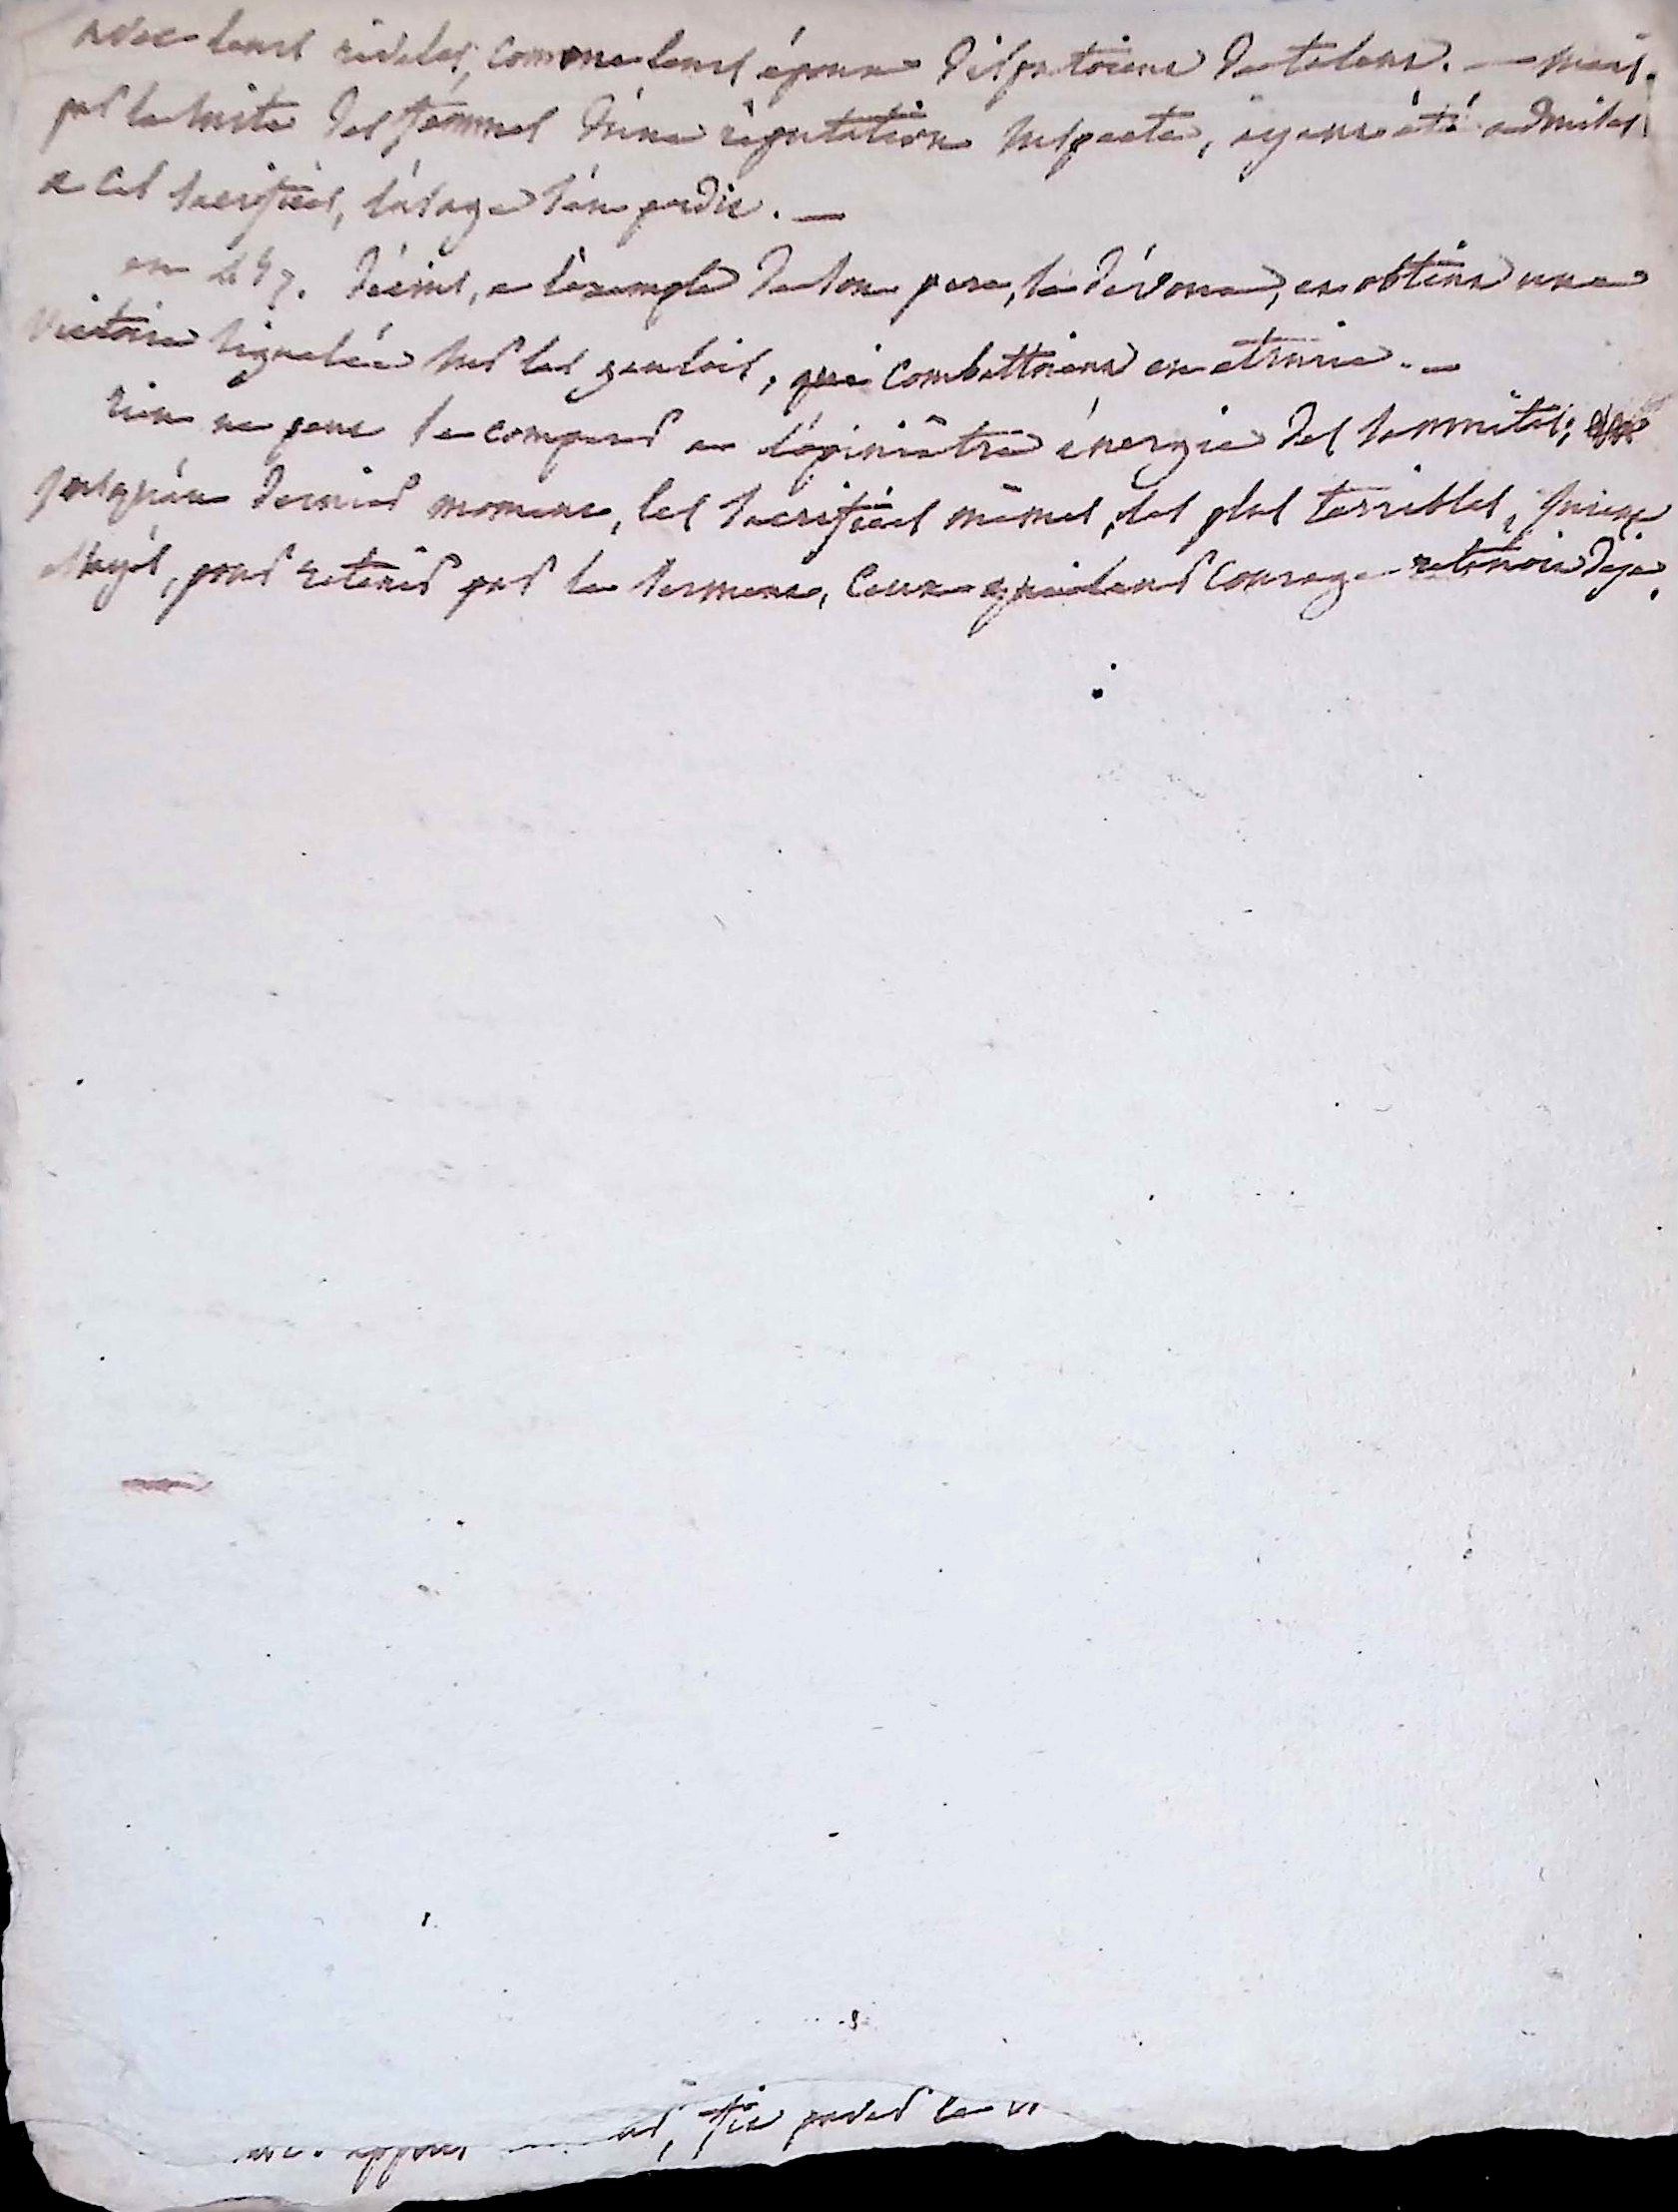 avec leurs rivales, comme leurs époux disputoient de talens. — mais
par la suite des femmes d'une réputation suspecte, ayant été admises
a ces sacrifices, l'usage s'en perdit. —
en 457. décius, a l'exemple de son pere, se dévoua, et obtint une
victoire signalée sur les gaulois, qui combattoient en etrurie. —
rien ne peut se comparer a l'opiniâtre énergie des samnites;
jusqu'au dernier moment, les sacrifices mêmes, les plus terribles, furent
essayés, pour retenir par le serment, ceux que leur courage retenoit deja.
fit paver la